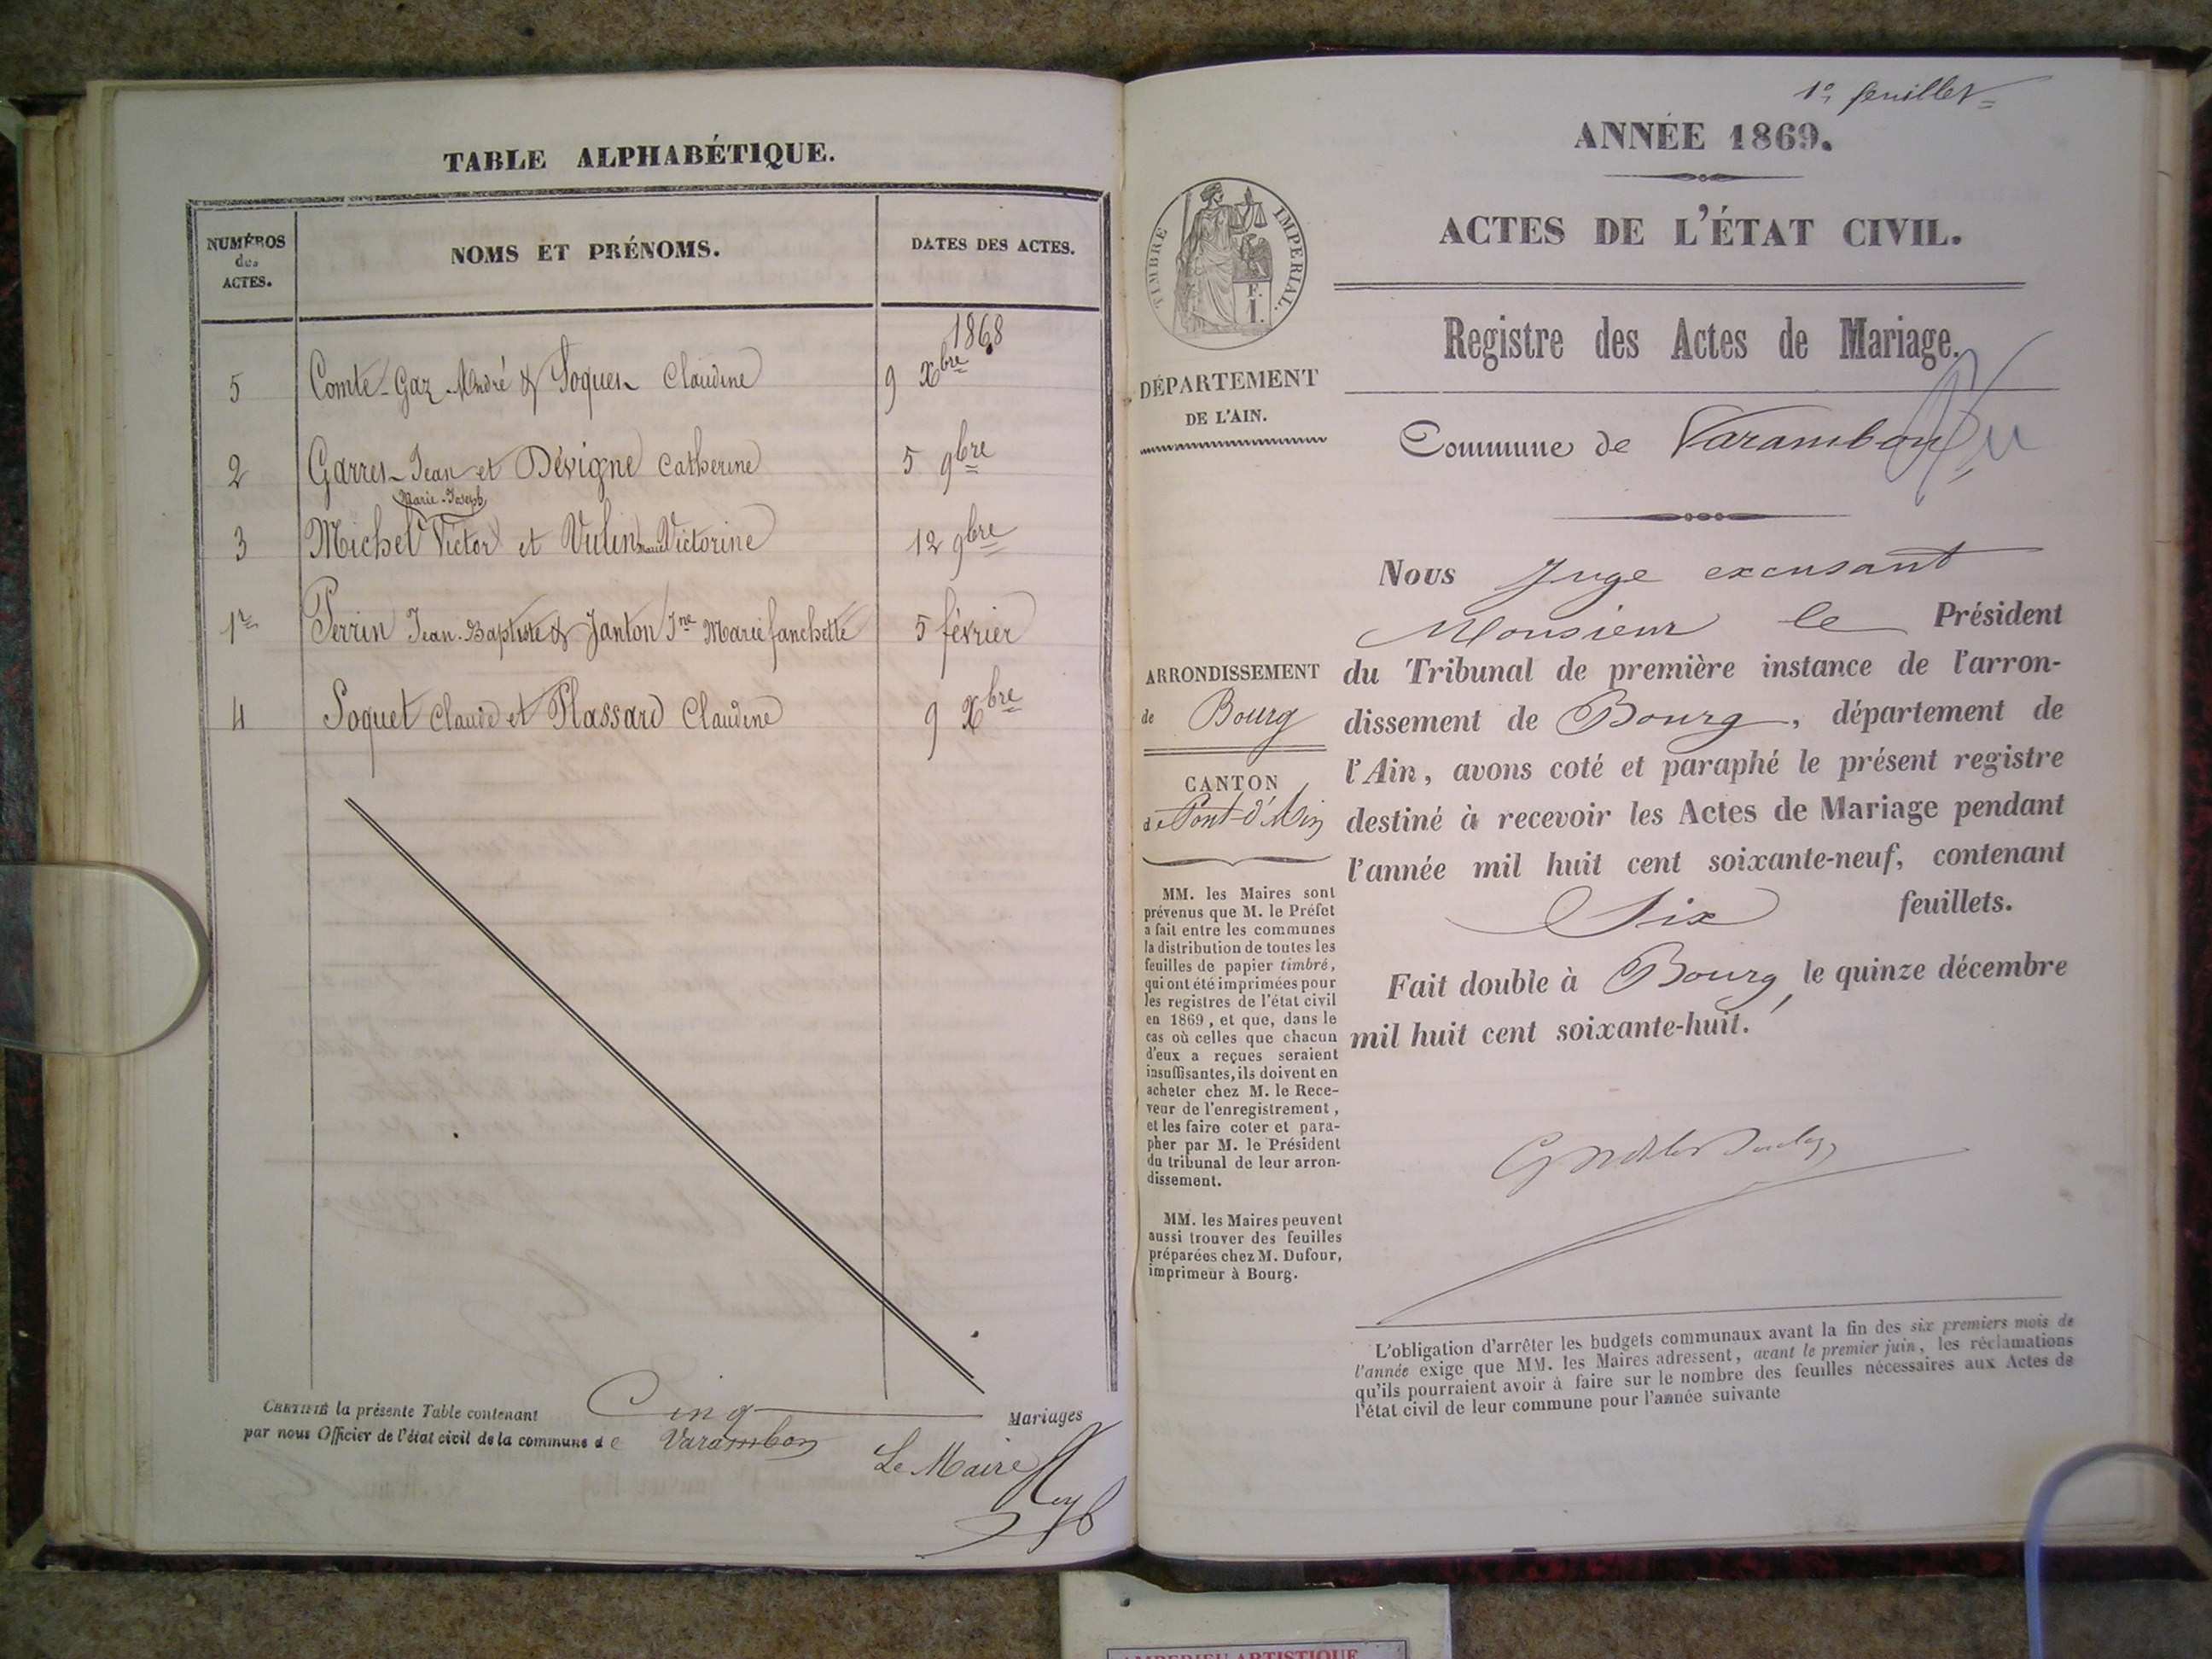 TABLE ALPHABÉTIQUE.
NUMÉROS
des
ACTES.
NOMS ET PRÉNOMS.
DATES DES ACTES.
1868
5 Comte-Gaz André & Soquet Claudine 9 Xbre
2 Garret Jean et Dévigne Catherine 5 9bre
Marie-Joseph
3 Michel Victor et Vulin Marie Victorine 12 9bre
1er Perrin Jean-Baptiste & Janton Jne Marie fanchette 5 février
4 Soquet Claude et Plassard Claudine 9 Xbre
CERTIFIÉ la présente Table contenant Cinq Mariages
par nous Officier de l'état civil de la commune de Varambon
Le Maire
1er feuillet
ANNÉE 1869.
TIMBRE IMPERIAL.
ACTES DE L'ÉTAT CIVIL.
Registre des Actes de Mariage.
DÉPARTEMENT
DE L'AIN.
Commune de Varambon
Nous Juge excusant
Monsieur le Président
du Tribunal de première instance de l'arron-
dissement de Bourg, département de
l'Ain, avons coté et paraphé le présent registre
destiné à recevoir les Actes de Mariage pendant
l'année mil huit cent soixante-neuf, contenant
Six feuillets.
Fait double à Bourg, le quinze décembre
mil huit cent soixante-huit.
ARRONDISSEMENT
de Bourg
CANTON
de Pont-d'Ain
MM. les Maires sont
prévenus que M. le Préfet
a fait entre les communes
la distribution de toutes les
feuilles de papier timbré,
qui ont été imprimées pour
les registres de l'état civil
en 1869, et que, dans le
cas où celles que chacun
d'eux a reçues seraient
insuffisantes, ils doivent en
acheter chez M. le Rece-
veur de l'enregistrement,
et les faire coter et para-
pher par M. le Président
du tribunal de leur arron-
dissement.
MM. les Maires peuvent
aussi trouver des feuilles
préparées chez M. Dufour,
imprimeur à Bourg.
L'obligation d'arrêter les budgets communaux avant la fin des six premiers mois de
l'année exige que MM. les Maires adressent, avant le premier juin, les réclamations
qu'ils pourraient avoir à faire sur le nombre des feuilles nécessaires aux Actes de
l'état civil de leur commune pour l'année suivante